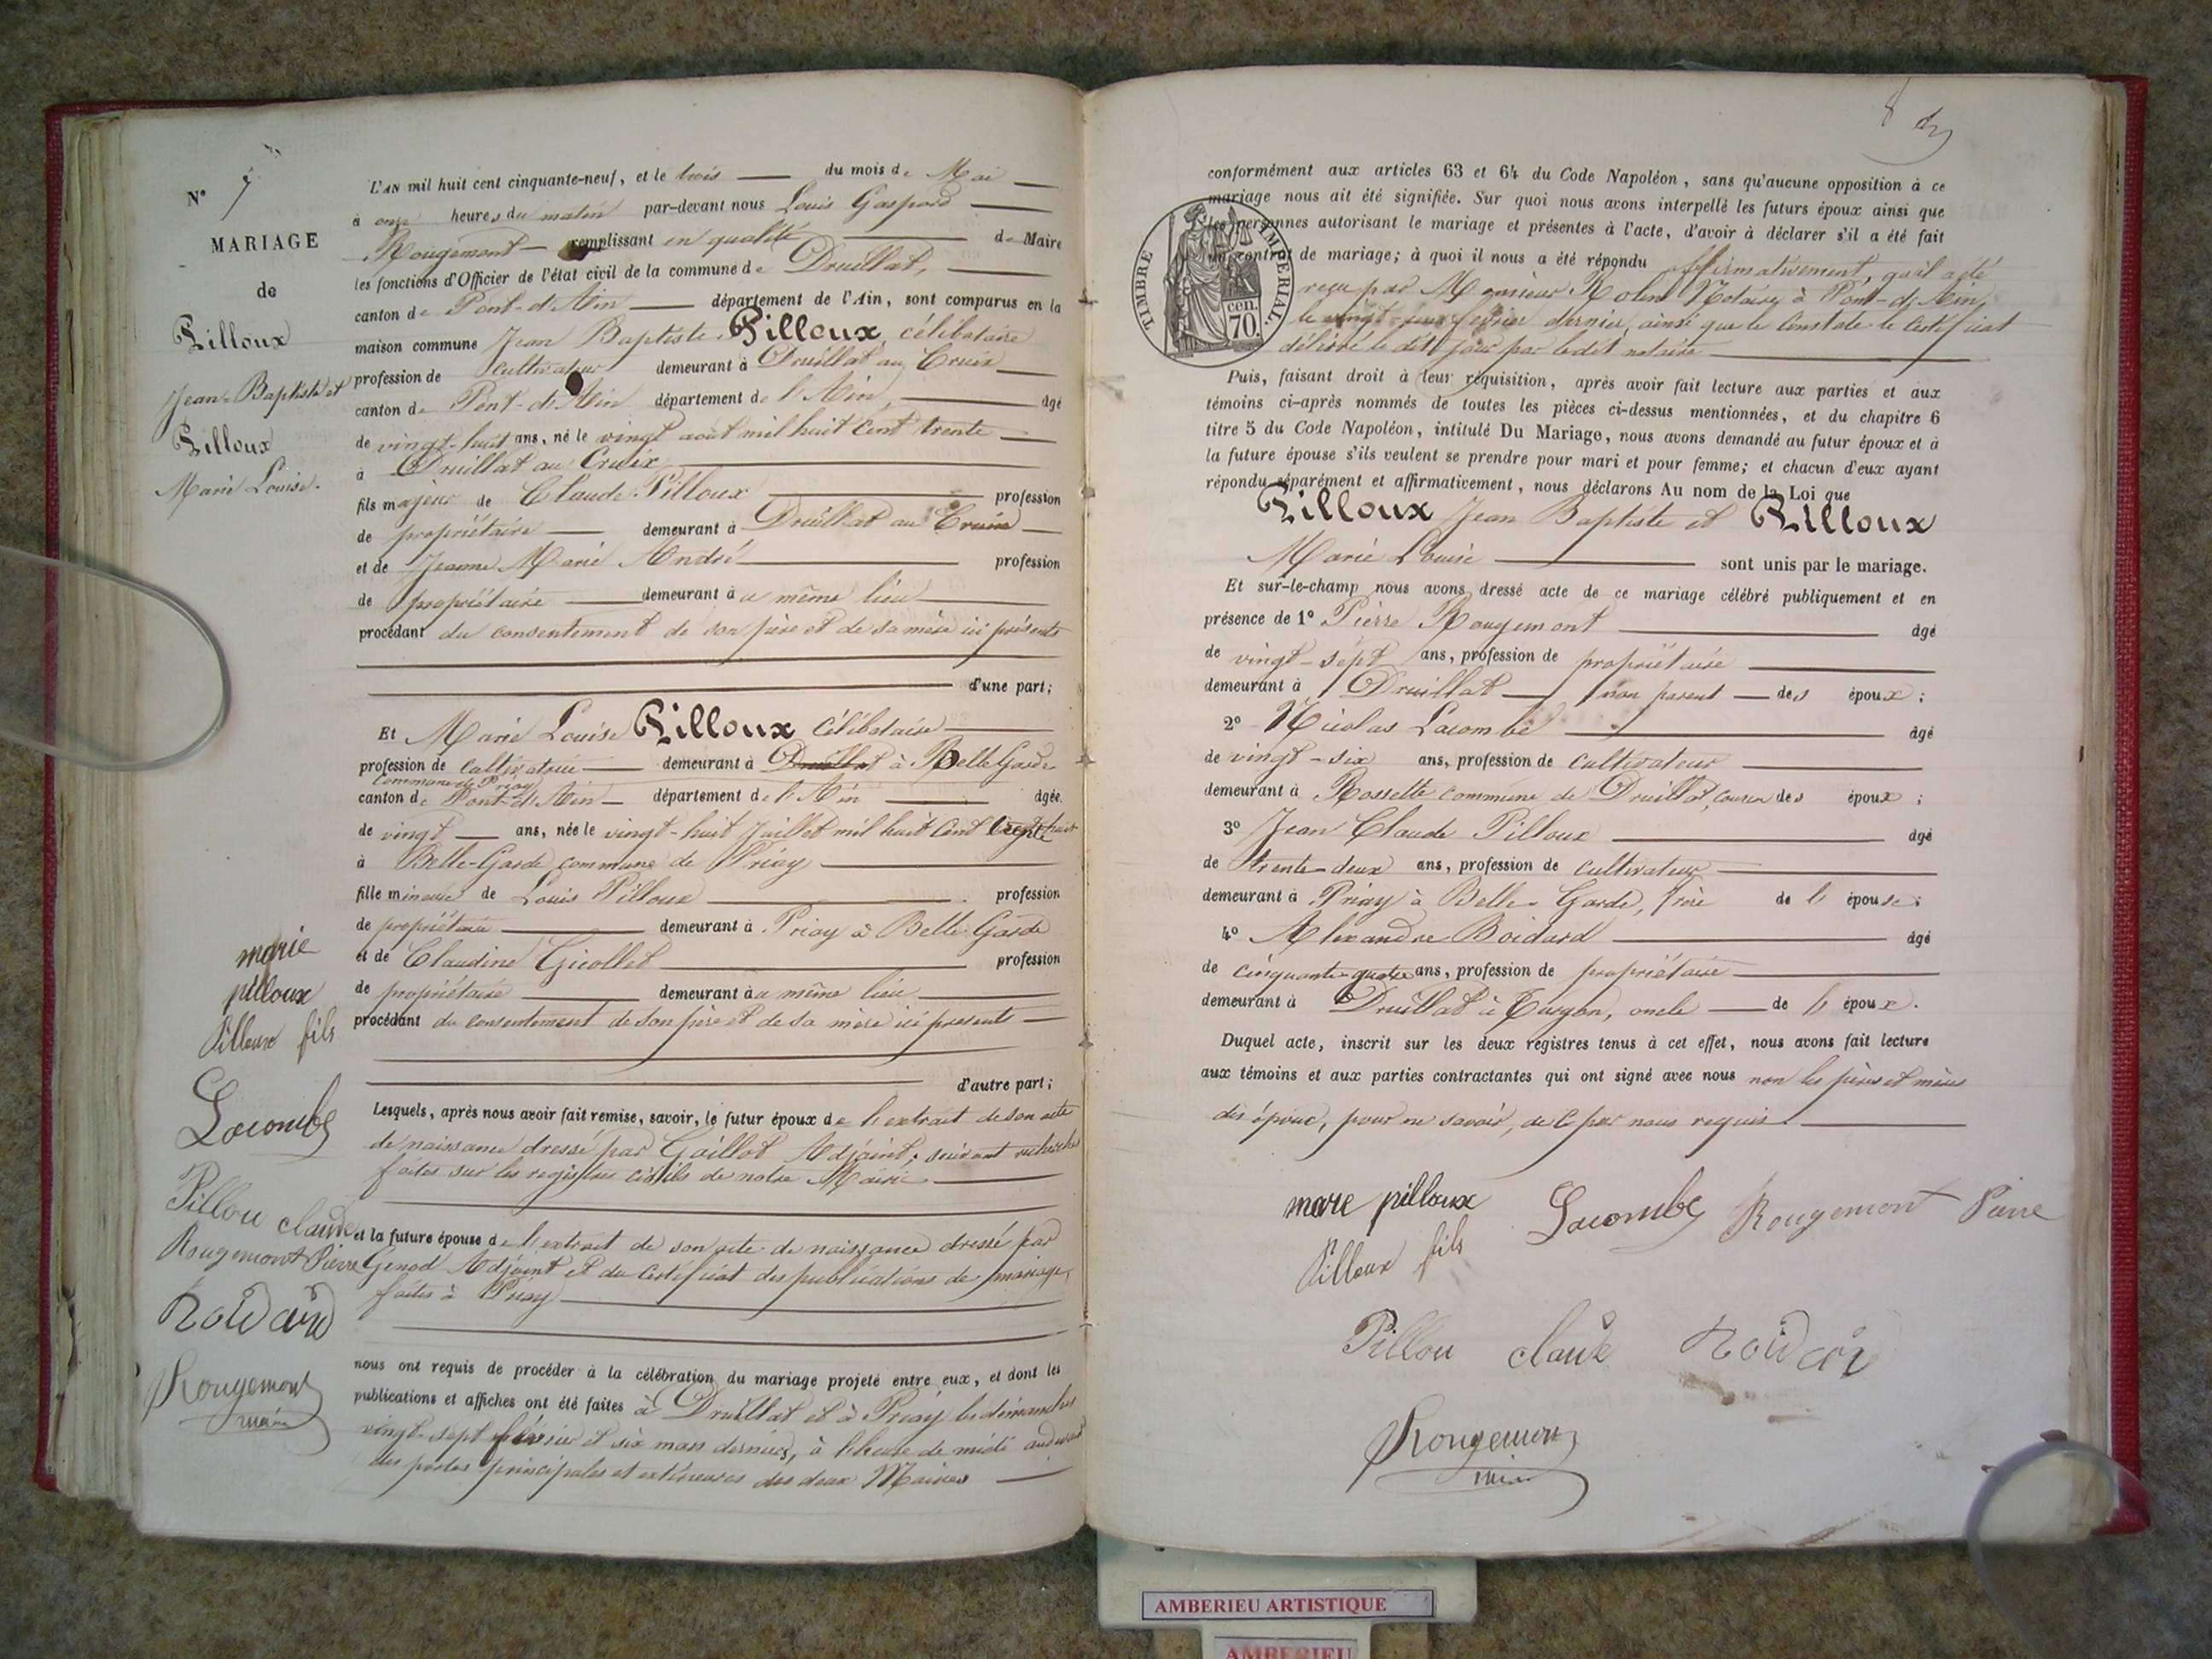 N° 7
MARIAGE
de
Pilloux
Jean-Baptiste et
Pilloux
Marie Louise.
L'AN mil huit cent cinquante-neuf, et le trois du mois de Mai
à onze heures du matin par-devant nous Louis Gaspard
Rougemont remplissant en qualité de Maire
les fonctions d'Officier de l'état civil de la commune de Druillat,
canton de Pont-d'Ain département de l'Ain, sont comparus en la
maison commune Jean Baptiste Pilloux, célibataire
profession de cultivateur demeurant à Druillat au Cruix
canton de Pont-d'Ain département de l'Ain, âgé
de vingt-huit ans, né le vingt août mil huit cent trente
à Druillat au Cruix
fils majeur de Claude Pilloux profession
de propriétaire demeurant à Druillat au Cruix
et de Jeanne Marie André profession
de propriétaire demeurant au même lieu
procédant du consentement de son père et de sa mère ici présents
d'une part;
Et Marie Louise Pilloux célibataire
profession de cultivatrice demeurant à Druillat à Belle Garde
commune de Priay
canton de Pont-d'Ain département de l'Ain âgée
de vingt ans, née le vingt-huit Juillet mil huit cent trente huit
à Belle-Garde commune de Priay
fille mineure de Louis Pilloux profession
de propriétaire demeurant à Priay à Belle Garde
et de Claudine profession
de propriétaire demeurant au même lieu
procédant du consentement de son père et de sa mère ici présents
d'autre part;
Lesquels, après nous avoir fait remise, savoir, le futur époux de l'extrait de son acte
de naissance dressé par Gaillot Adjoint; suivant recherches
faites sur les registres civils de notre Mairie
et la future épouse de l'extrait de son acte de naissance dressé par
Genod Adjoint et du certificat des publications de mariage,
faites à Priay
nous ont requis de procéder à la célébration du mariage projeté entre eux, et dont les
publications et affiches ont été faites à Druillat et à Priay les dimanches
vingt-sept février et six mars derniers, à l'heure de midi au devant
des portes principales et extérieures des deux Mairies
marie
pilloux
Pilloux fils
Lacombe
Pillou claude
Rougemont Pierre
Boidard
Rougemont
maire
8
conformément aux articles 63 et 64 du Code Napoléon, sans qu'aucune opposition à ce
mariage nous ait été signifiée. Sur quoi nous avons interpellé les futurs époux ainsi que
les personnes autorisant le mariage et présentes à l'acte, d'avoir à déclarer s'il a été fait
un contrat de mariage; à quoi il nous a été répondu affirmativement, qu'il a été
reçu par Monsieur Notaire à Pont-d'Ain,
le vingt février dernier, ainsi que le constate le certificat
délivré le dit jour par ledit notaire
TIMBRE IMPERIAL.
cen.
70.
Puis, faisant droit à leur réquisition, après avoir fait lecture aux parties et aux
témoins ci-après nommés de toutes les pièces ci-dessus mentionnées, et du chapitre 6
titre 5 du Code Napoléon, intitulé Du Mariage, nous avons demandé au futur époux et à
la future épouse s'ils veulent se prendre pour mari et pour femme; et chacun d'eux ayant
répondu séparément et affirmativement, nous déclarons Au nom de la Loi que
Pilloux Jean Baptiste et Pilloux
Marie Louise sont unis par le mariage.
Et sur-le-champ nous avons dressé acte de ce mariage célébré publiquement et en
présence de 1° Pierre Rougemont âgé
de vingt-sept ans, profession de propriétaire
demeurant à Druillat non parent des époux;
2° Nicolas Lacombe âgé
de vingt-six ans, profession de cultivateur
demeurant à Rossette commune de Druillat, cousin des époux;
3° Jean Claude Pilloux âgé
de trente-deux ans, profession de cultivateur
demeurant à Priay à Belle-Garde, frère de l' épouse;
4° Alexandre Boidard âgé
de cinquante-quatre ans, profession de propriétaire
demeurant à Druillat à Turgon, oncle de l' époux.
Duquel acte, inscrit sur les deux registres tenus à cet effet, nous avons fait lecture
aux témoins et aux parties contractantes qui ont signé avec nous non les pères et mères
des époux, pour ne savoir, de ce par nous requis
mare pilloux Lacombe Rougemont Pierre
Pilloux fils
Pillou claude Boidard
Rougemont
maire
AMBERIEU ARTISTIQUE
AMBERIEU